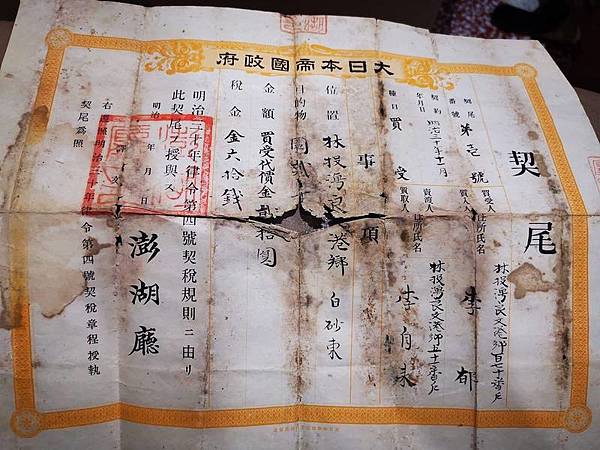 大日本帝國政府
契尾
契尾番號
第壱號
契約年月日
明治三十年十一月
種目
買受
買受人
住所氏名
林投灣良文港鄉百七十番戶
李郁
賣渡人
質取人
住所氏名
林投灣良文港鄉
事項
位置
林投灣良文港鄉 白砂東
目的物
金額
買受代價金貳拾圓
稅金
金六拾錢
明治三十年律令第四號契稅規則ニ由リ
此契尾ヲ授與ス
明治 年 月 日
澎湖廳
右遵照明治三十年律令第四號契稅章程授執
契尾爲照